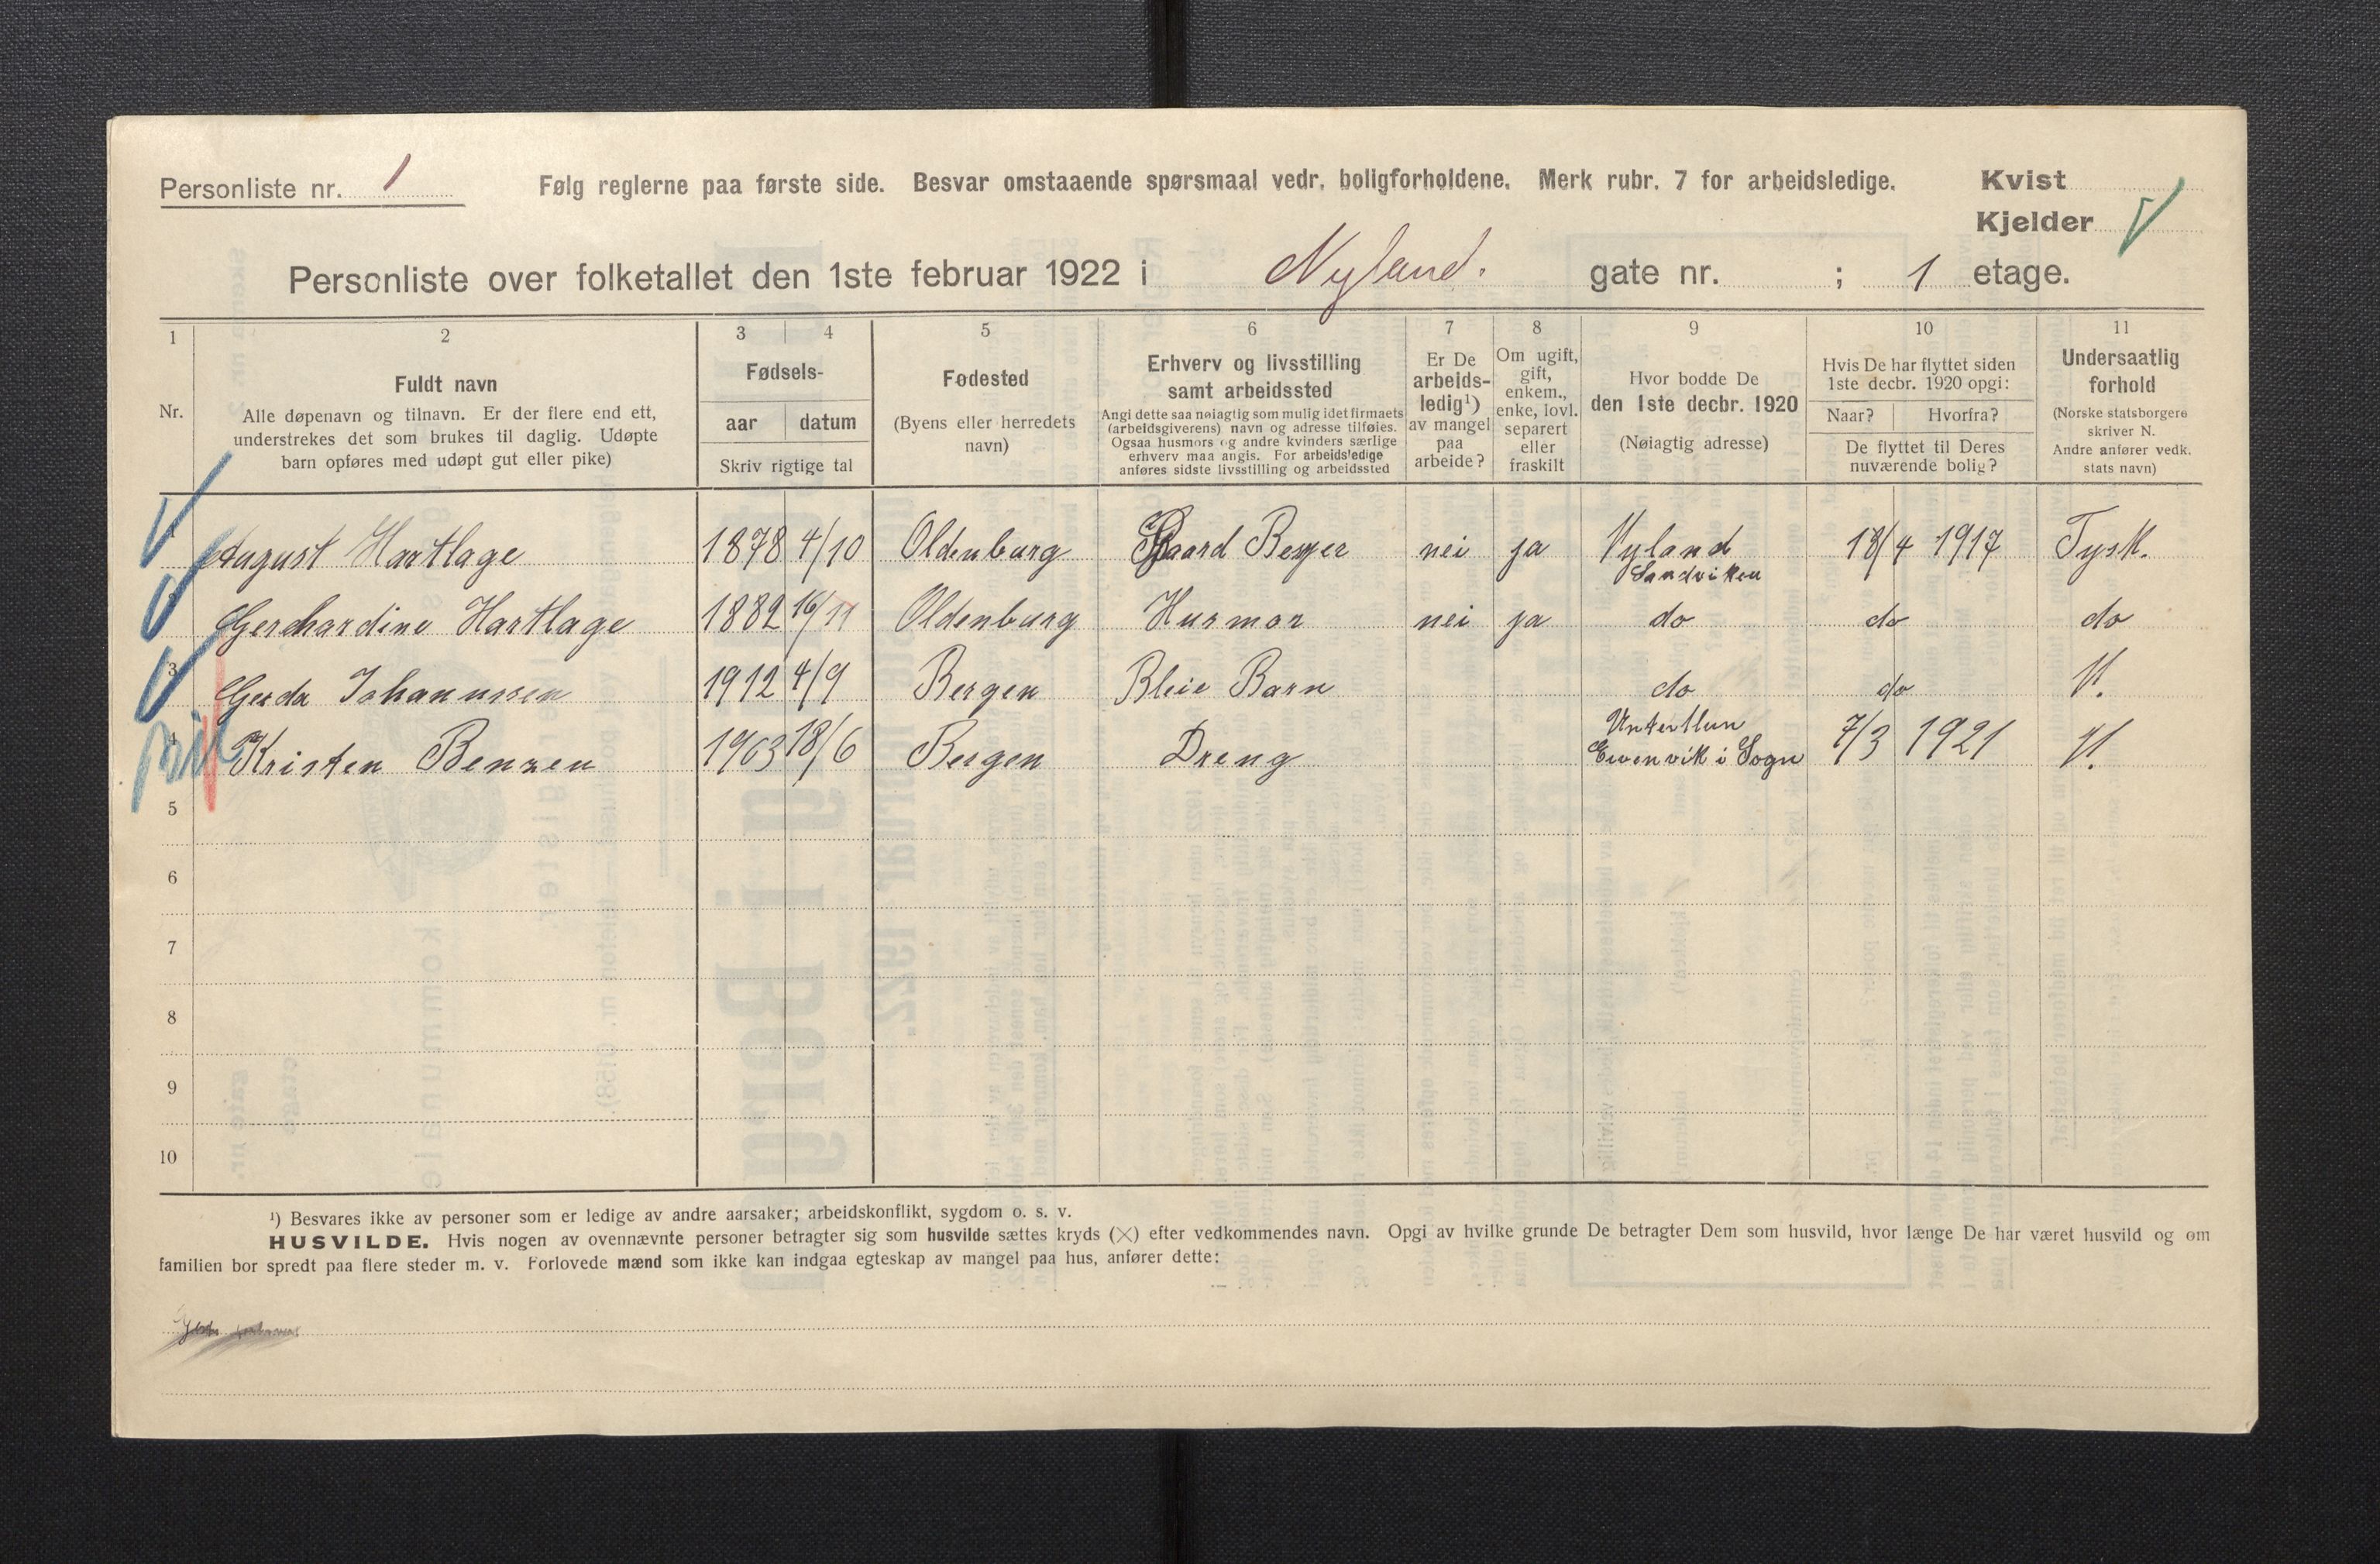 Personliste nr. 1
Følg reglerne paa første side. Besvar omstaaende spørsmaal vedr. boligforholdene. Merk rubr. 7 for arbeidsledige.
Kvist
Kjelder
Personliste over folketallet den 1ste februar 1922 i Nyland. gate nr. ; 1 etage.
1 2 3 4 5 6 7 8 9 10 11
Nr.
Fuldt navn
Alle døpenavn og tilnavn. Er der flere end ett,
understrekes det som brukes til daglig. Udøpte
barn opføres med udøpt gut eller pike)
Fødsels-
aar datum
Skriv rigtige tal
Fødested
(Byens eller herredets
navn)
Erhverv og livsstilling
samt arbeidssted
Angi dette saa nøiagtig som mulig idet firmaets
(arbeidsgiverens) navn og adresse tilføies.
Ogsaa husmors og andre kvinders særlige
erhverv maa angis. For arbeidsledige
anføres sidste livsstilling og arbeidssted
Er De
arbeids-
ledig¹)
av mangel
paa
arbeide?
Om ugift,
gift,
enkem.,
enke, lovl.
separert
eller
fraskilt
Hvor bodde De
den 1ste decbr. 1920
(Nøiagtig adresse)
Hvis De har flyttet siden
1ste decbr. 1920 opgi:
Naar? Hvorfra?
De flyttet til Deres
nuværende bolig?
Undersaatlig
forhold
(Norske statsborgere
skriver N.
Andre anfører vedk.
stats navn)
August Hartlage 1878 4/10 Oldenburg nei ja Nyland Sandviken 18/4 1917 Tysk.
Gerchardine Hartlage 1882 16/11 Oldenburg Husmor nei ja do do do
3 Gerda Johannssen 1912 4/9 Bergen Bleie Barn do do N.
4 Kristen Benzen 1903 18/6 Bergen Dreng Evenvik i Sogn 7/3 1921 N.
5
6
7
8
9
10
¹) Besvares ikke av personer som er ledige av andre aarsaker; arbeidskonflikt, sygdom o. s. v.
HUSVILDE. Hvis nogen av ovennævnte personer betragter sig som husvilde sættes kryds (×) efter vedkommendes navn. Opgi av hvilke grunde De betragter Dem som husvild, hvor længe De har været husvild og om
familien bor spredt paa flere steder m. v. Forlovede mænd som ikke kan indgaa egteskap av mangel paa hus, anfører dette: